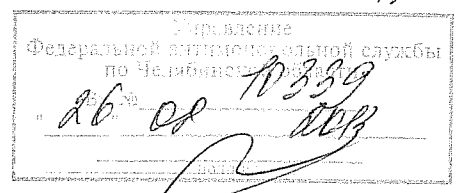 Управление
Федеральной антимонопольной службы
по Челябинской области
№ 10339
"26" 08